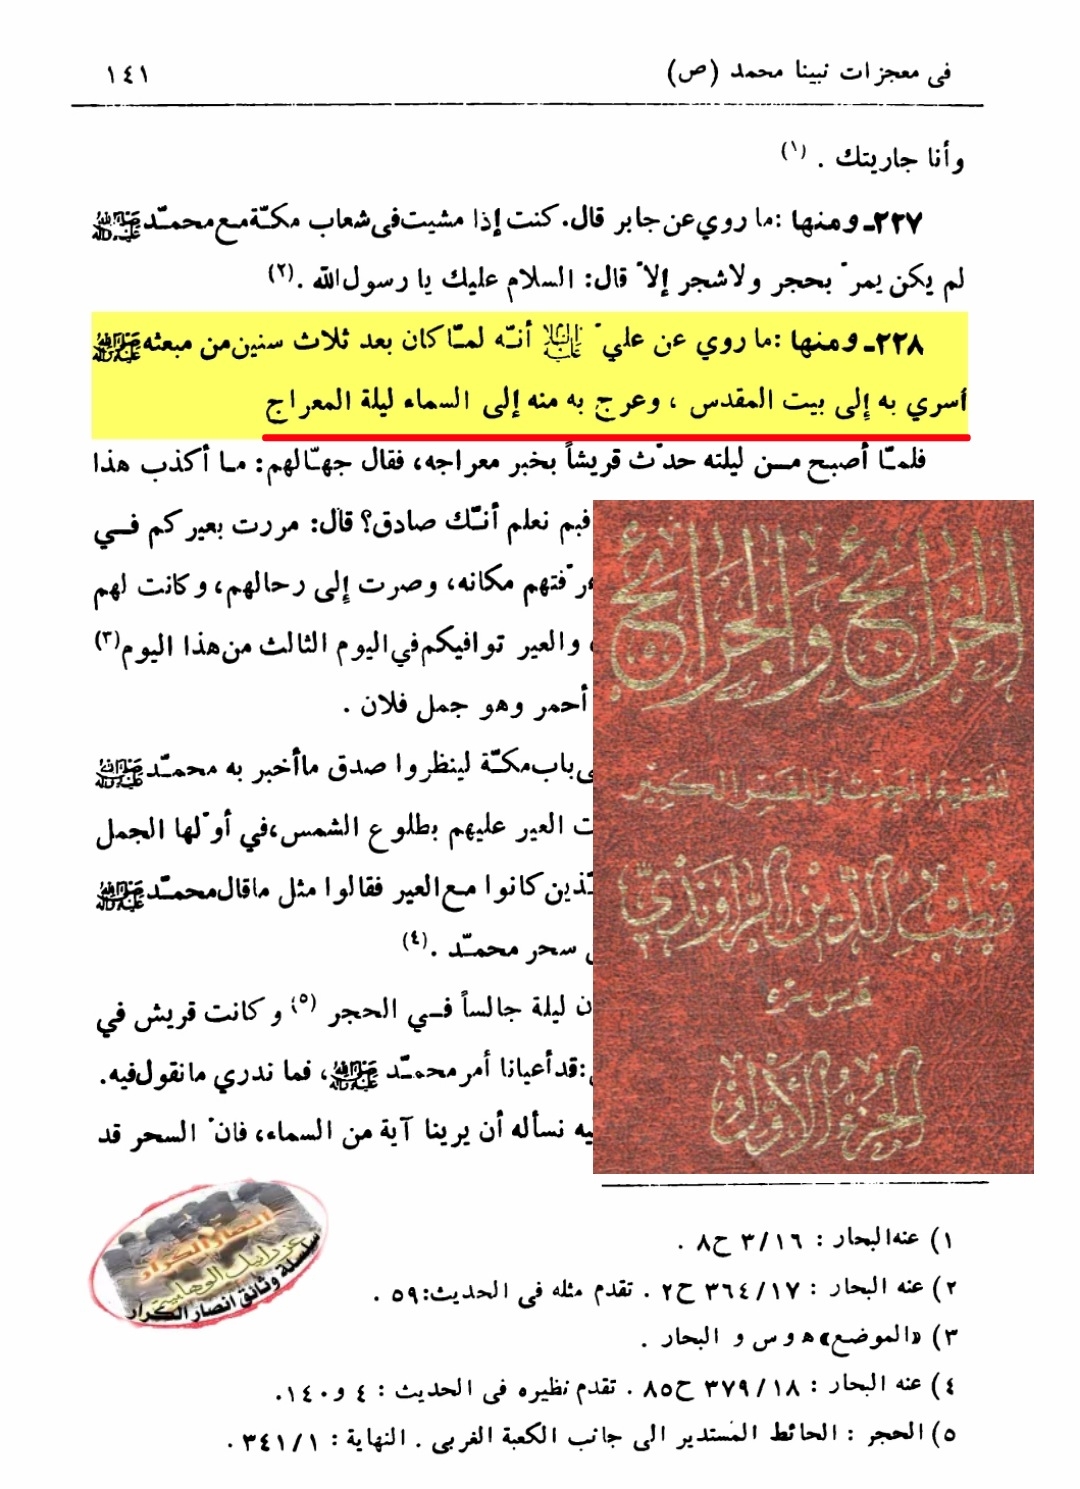 في معجزات نبينا محمد (ص)
١٤١
وأنا جاريتك . (١)
٢٢٧ـ ومنها :ما روي عن جابر قال. كنت إذا مشيت في شعاب مكّة مع محمّد ﷺ
لم يكن يمرّ بحجر ولاشجر إلاّ قال: السلام عليك يا رسول الله .(٢)
٢٢٨ـ ومنها :ما روي عن عليّ عليه السلام أنّه لمّا كان بعد ثلاث سنين من مبعثه ﷺ
أسري به إلى بيت المقدس ، وعرج به منه إلى السماء ليلة المعراج
فلمّا أصبح مـن ليلته حدّث قريشاً بخبر معراجه، فقال جهّالهم: ما أكذب هذا
فبم نعلم أنّك صادق؟ قال: مررت بعيركم فـي
رّفتهم مكانه، وصرت إلى رحالهم، وكانت لهم
والعير توافيكم في اليوم الثالث من هذا اليوم(٣)
أحمر وهو جمل فلان .
باب مكّة لينظروا صدق ماأخبر به محمّد ﷺ
ت العير عليهم بطلوع الشمس،في أوّلها الجمل
ّذين كانوا مع العير فقالوا مثل ماقال محمّد ﷺ
سحر محمّد .(٤)
ن ليلة جالساً فـي الحجر (٥) وكانت قريش في
:قد أعيانا أمر محمّد ﷺ، فما ندري ما نقول فيه.
يه نسأله أن يرينا آية من السماء، فانّ السحر قد
الخرائج والجرائح
للفقيه المحدث والمفسر الكبير
قطب الدين الراوندي
قدس سره
الجزء الأول
١) عنه البحار : ٣/١٦ ح٨ .
٢) عنه البحار : ٣٦٤/١٧ ح٢ . تقدم مثله في الحديث:٥٩ .
٣) «الموضع» ه و س و البحار .
٤) عنه البحار : ٣٧٩/١٨ ح٨٥ . تقدم نظيره في الحديث : ٤ و١٤٠.
٥) الحجر : الحائط المستدير الى جانب الكعبة الغربي . النهاية : ٣٤١/١ .
انصار الكرار
عزرائيل الوهابية
سلسلة وثائق انصار الكرار